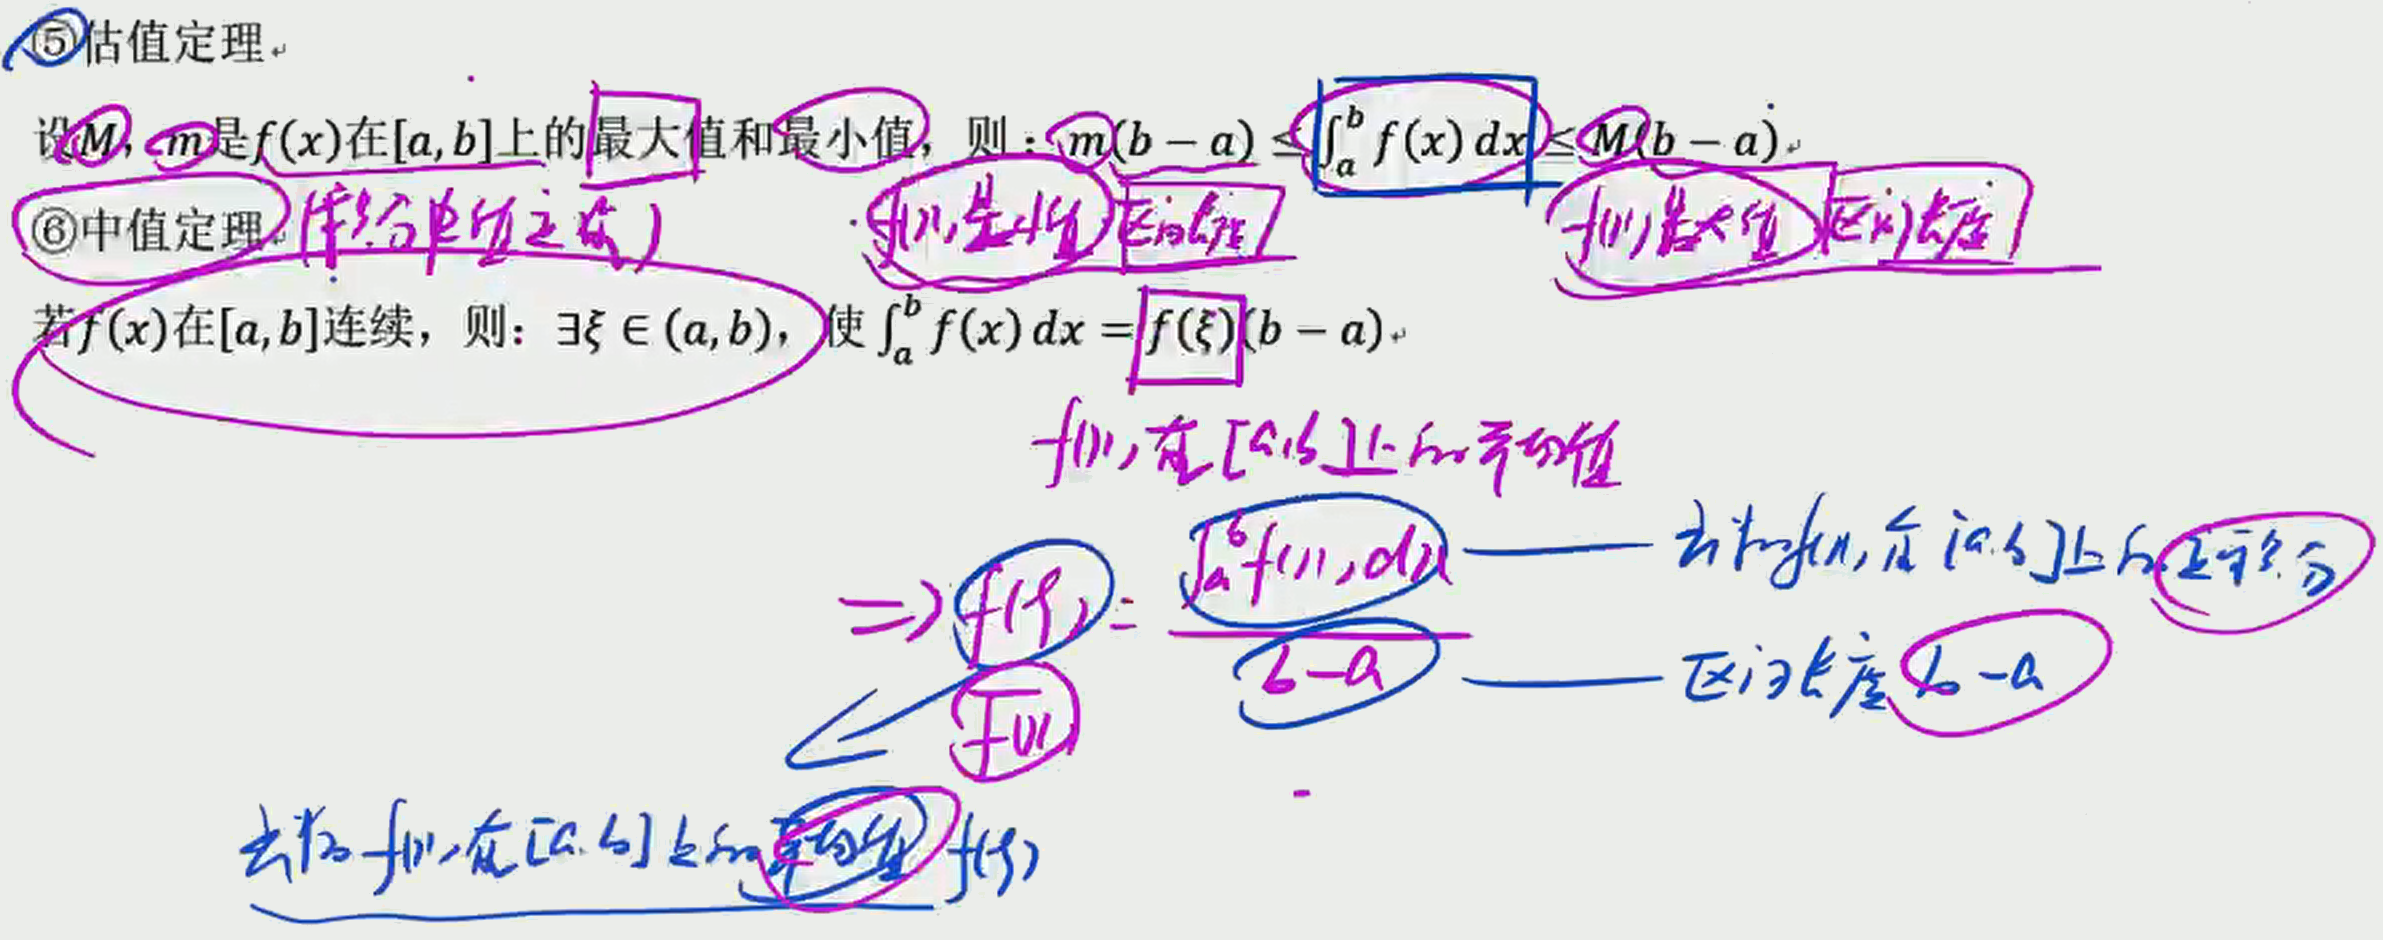 ⑤估值定理
设M，m是f(x)在[a,b]上的最大值和最小值，则：m(b − a) ≤ ∫ₐᵇ f(x) dx ≤ M(b − a)
⑥中值定理 (积分中值定理) f(x)最小值 区间长度 f(x)最大值 区间长度
若f(x)在[a,b]连续，则：∃ξ ∈ (a,b)，使 ∫ₐᵇ f(x) dx = f(ξ)(b − a)
f(x)在[a,b]上的平均值
⇒ f(ξ) = ∫ₐᵇ f(x)dx / (b−a)
f(x)在[a,b]上的定积分
区间长度 b−a
f(x)
f(x)在[a,b]上的平均值 f(ξ)